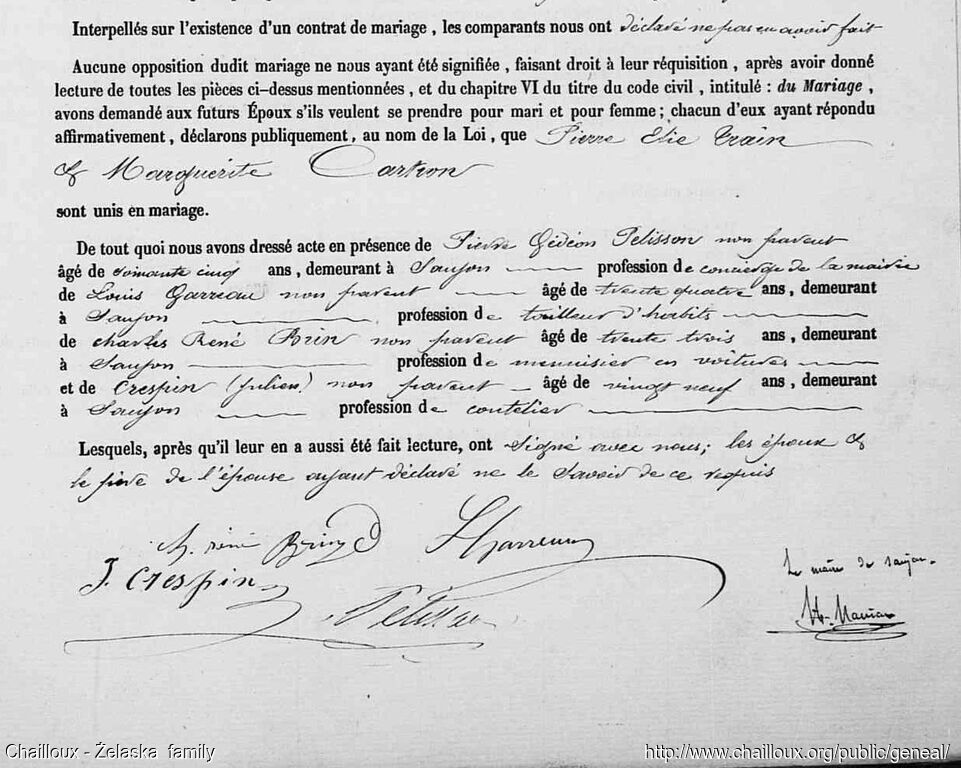 Interpellés sur l'existence d'un contrat de mariage, les comparants nous ont déclaré ne pas en avoir fait
Aucune opposition dudit mariage ne nous ayant été signifiée, faisant droit à leur réquisition, après avoir donné
lecture de toutes les pièces ci-dessus mentionnées, et du chapitre VI du titre du code civil, intitulé : du Mariage,
avons demandé aux futurs Époux s'ils veulent se prendre pour mari et pour femme ; chacun d'eux ayant répondu
affirmativement, déclarons publiquement, au nom de la Loi, que Pierre Elie
& Marguerite Cartron
sont unis en mariage.
De tout quoi nous avons dressé acte en présence de Pierre Gédéon Pelisson non parent
âgé de soixante cinq ans, demeurant à Saujon profession de concierge de la mairie
de Louis Garreau non parent âgé de trente quatre ans, demeurant
à Saujon profession de tailleur d'habits
de charles René Brin non parent âgé de trente trois ans, demeurant
à Saujon profession de menuisier en voitures
et de Crespin (Julien) non parent âgé de vingt neuf ans, demeurant
à Saujon profession de coutelier
Lesquels, après qu'il leur en a aussi été fait lecture, ont signé avec nous; les époux &
le père de l'épouse ayant déclaré ne le savoir de ce requis
ch. rené Brin LGarreau
J. Crespin
Le maire de saujon.
Pelisson
Chailloux - Żelaska family
http://www.chailloux.org/public/geneal/